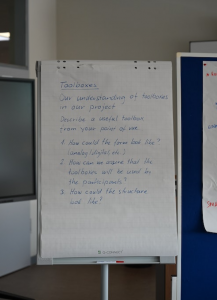 Toolboxes:
Our understanding of toolboxes
in our project
Describe a useful toolbox
from your point of view
1. How could the form look like?
(analog / digital etc.)
2. How can we assure that the
toolboxes will be used by
the participants?
3. How could the structure
look like?